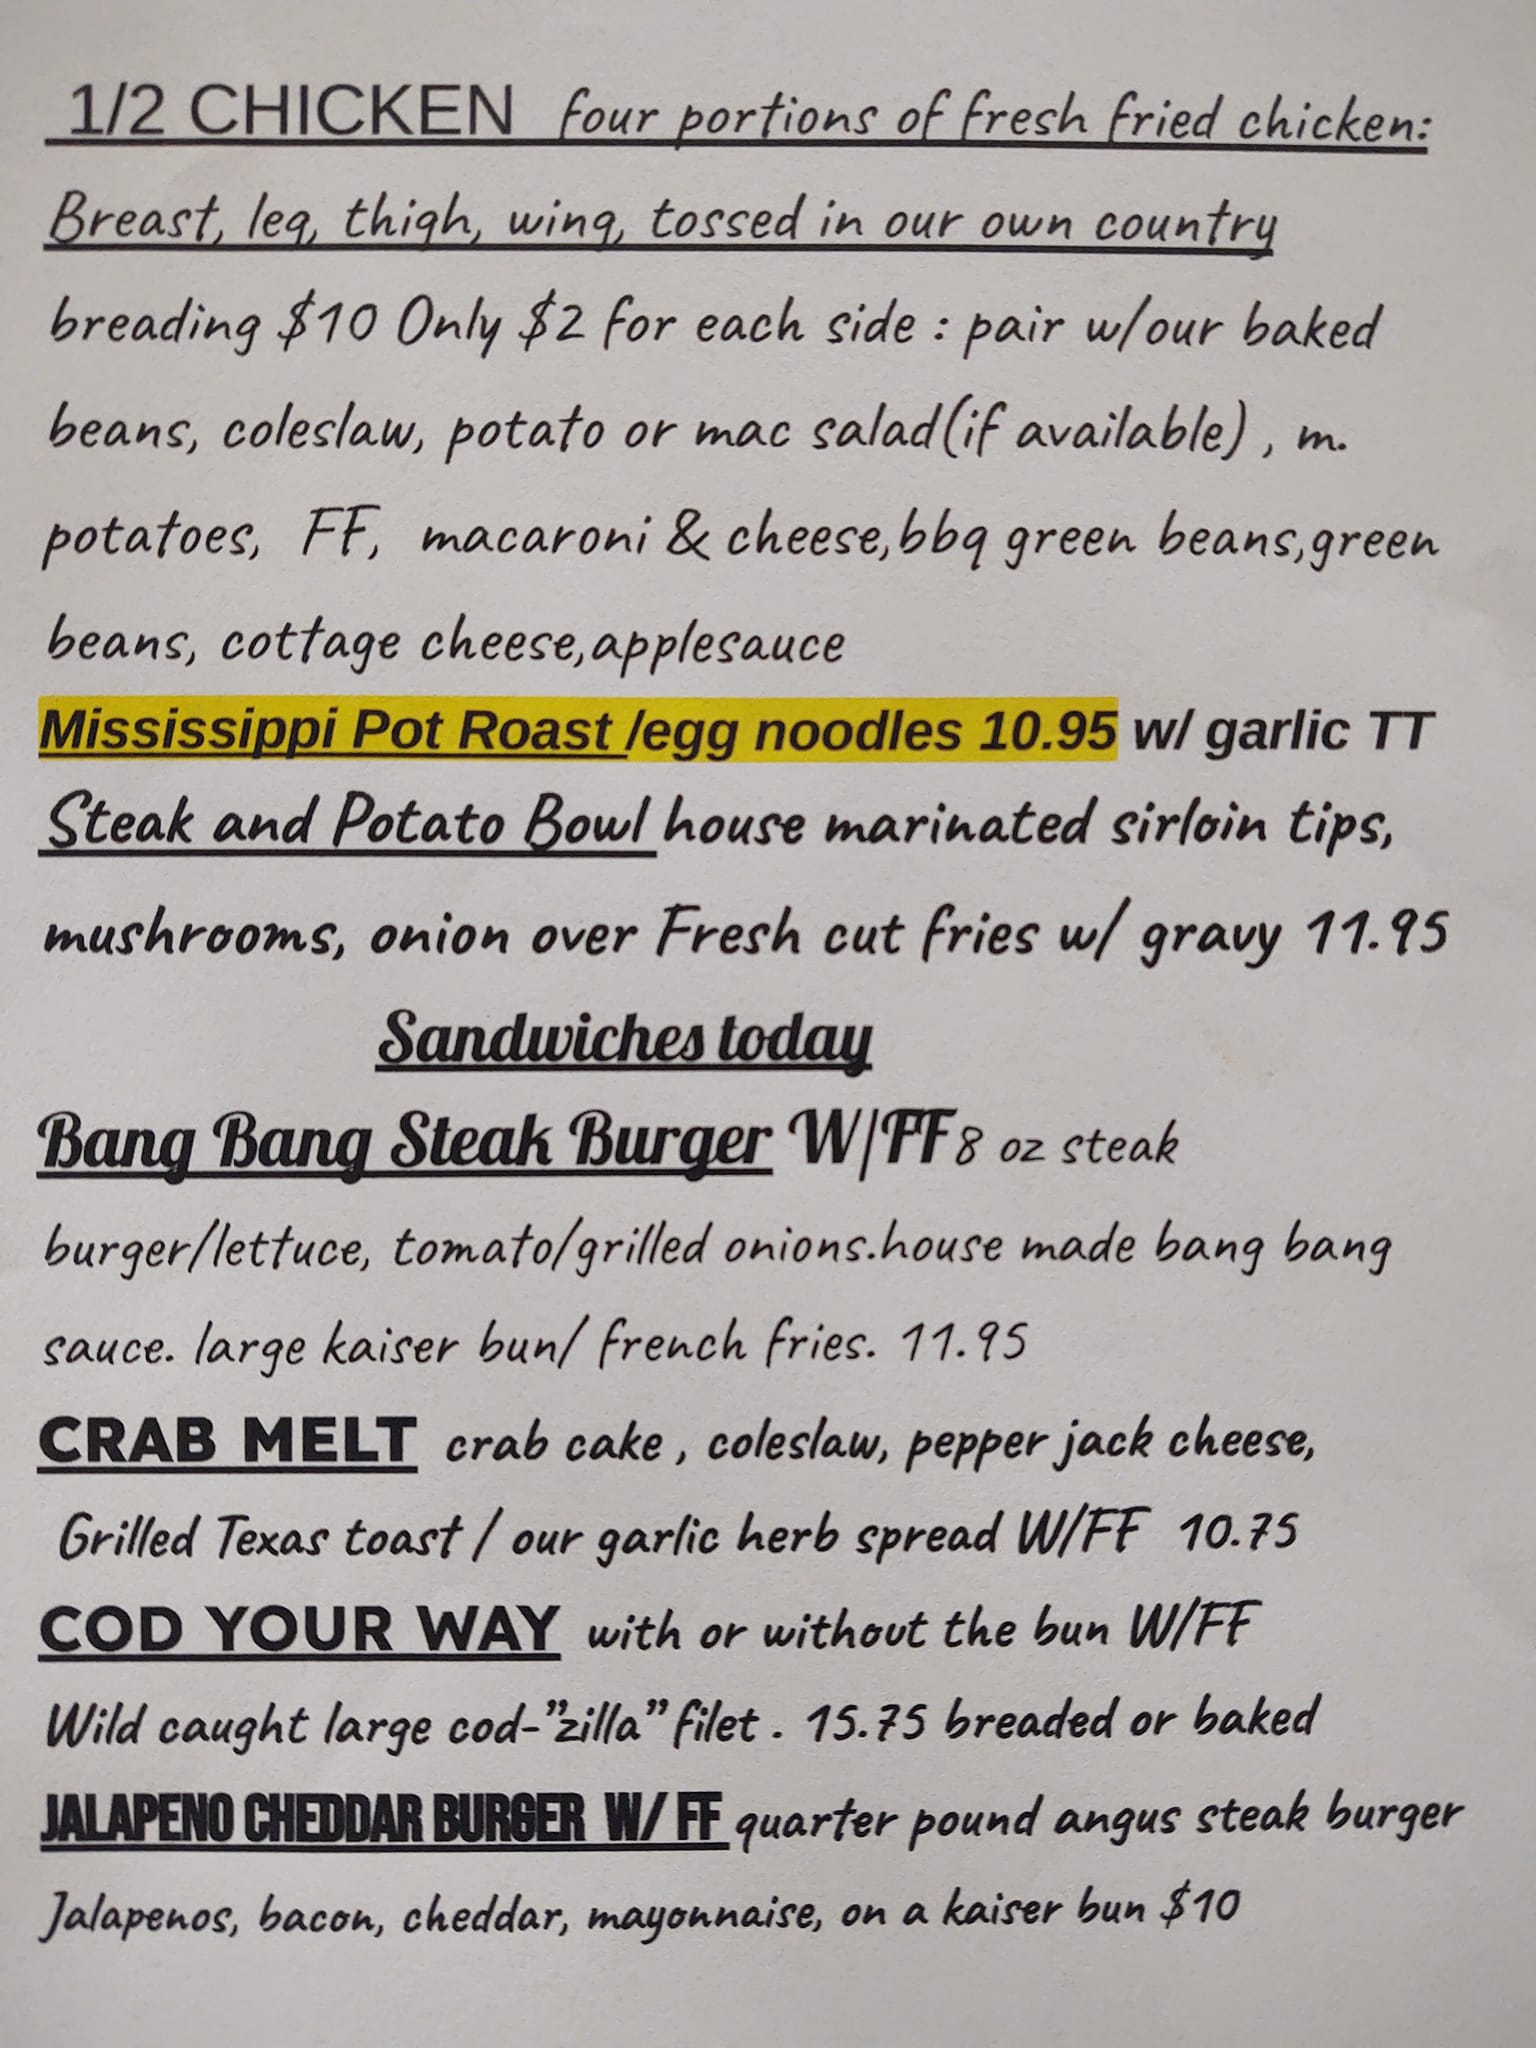 1/2 CHICKEN four portions of fresh fried chicken:
Breast, leg, thigh, wing, tossed in our own country
breading $10 Only $2 for each side : pair w/our baked
beans, coleslaw, potato or mac salad(if available) , m.
potatoes, FF, macaroni & cheese,bbq green beans,green
beans, cottage cheese,applesauce
Mississippi Pot Roast /egg noodles 10.95 w/ garlic TT
Steak and Potato Bowl house marinated sirloin tips,
mushrooms, onion over Fresh cut fries w/ gravy 11.95
Sandwiches today
Bang Bang Steak Burger W/FF 8 oz steak
burger/lettuce, tomato/grilled onions.house made bang bang
sauce. large kaiser bun/ french fries. 11.95
CRAB MELT crab cake , coleslaw, pepper jack cheese,
Grilled Texas toast / our garlic herb spread W/FF 10.75
COD YOUR WAY with or without the bun W/FF
Wild caught large cod-”zilla” filet . 15.75 breaded or baked
JALAPENO CHEDDAR BURGER W/ FF quarter pound angus steak burger
Jalapenos, bacon, cheddar, mayonnaise, on a kaiser bun $10